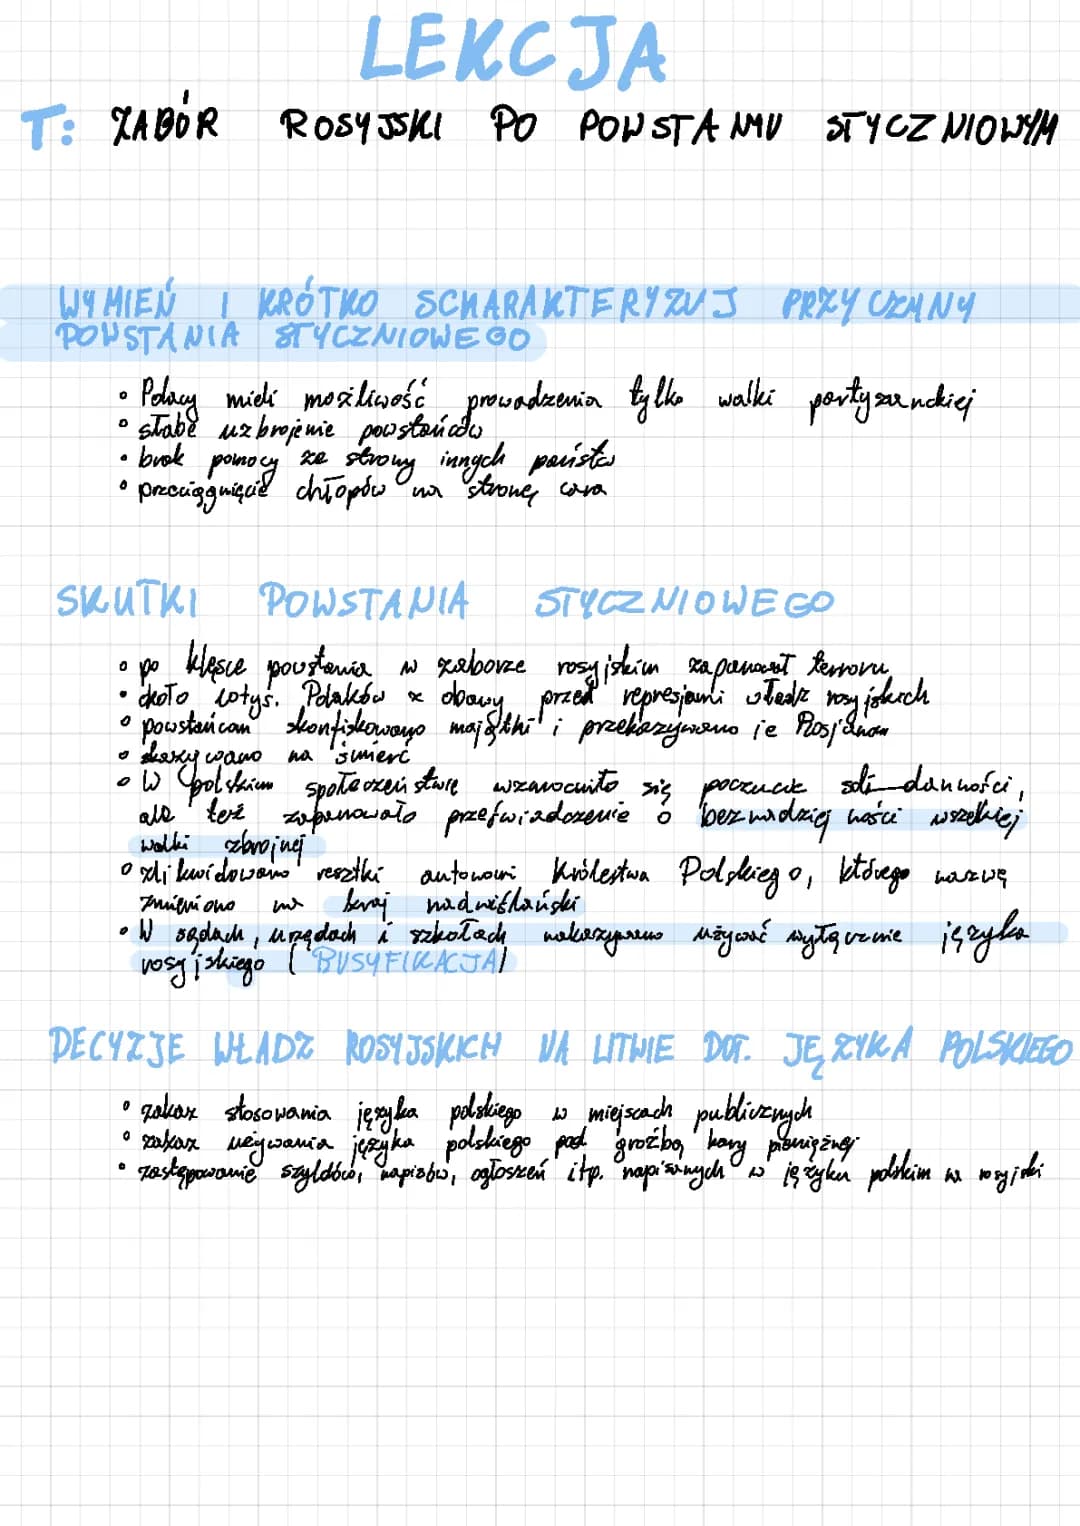 LEKCJA
T: ZABÓR ROSYJSKI PO POWSTANIU STYCZNIOWYM
WYMIEŃ I KRÓTKO SCHARAKTERYZUJ PRZYCZYNY
POWSTANIA STYCZNIOWEGO
• Polacy mieli możliwość prowadzenia tylko walki partyzanckiej
• słabe uzbrojenie powstańców
• brak pomocy ze strony innych państw
• przeciągnięcie chłopów na stronę cara
SKUTKI POWSTANIA STYCZNIOWEGO
• po klęsce powstania w zaborze rosyjskim zapanował terroru
• około Polaków z obawy przed represjami władz rosyjskich
• powstańcom skonfiskowano majątki i przekazywano je Rosjanom
• skazywano na śmierć
• W polskim społeczeństwie wzmocniło się poczucie soli-darności,
ale też zapanowało przeświadczenie o beznadziejności wszelkiej
walki zbrojnej
• zlikwidowano resztki autonomi Królestwa Polskiego, którego nazwę
zmieniono na kraj nadwiślański
• W sądach, urzędach i szkołach nakazywano używać wyłącznie języka
rosyjskiego (RUSYFIKACJA)
DECYZJE WŁADZ ROSYJSKICH NA LITWIE DOT. JĘZYKA POLSKIEGO
• zakaz stosowania języka polskiego w miejscach publicznych
• zakaz używania języka polskiego pod groźbą kary pieniężnej
• zastępowanie szyldów, napisów, ogłoszeń itp. napisanych w języku polskim na rosyjski